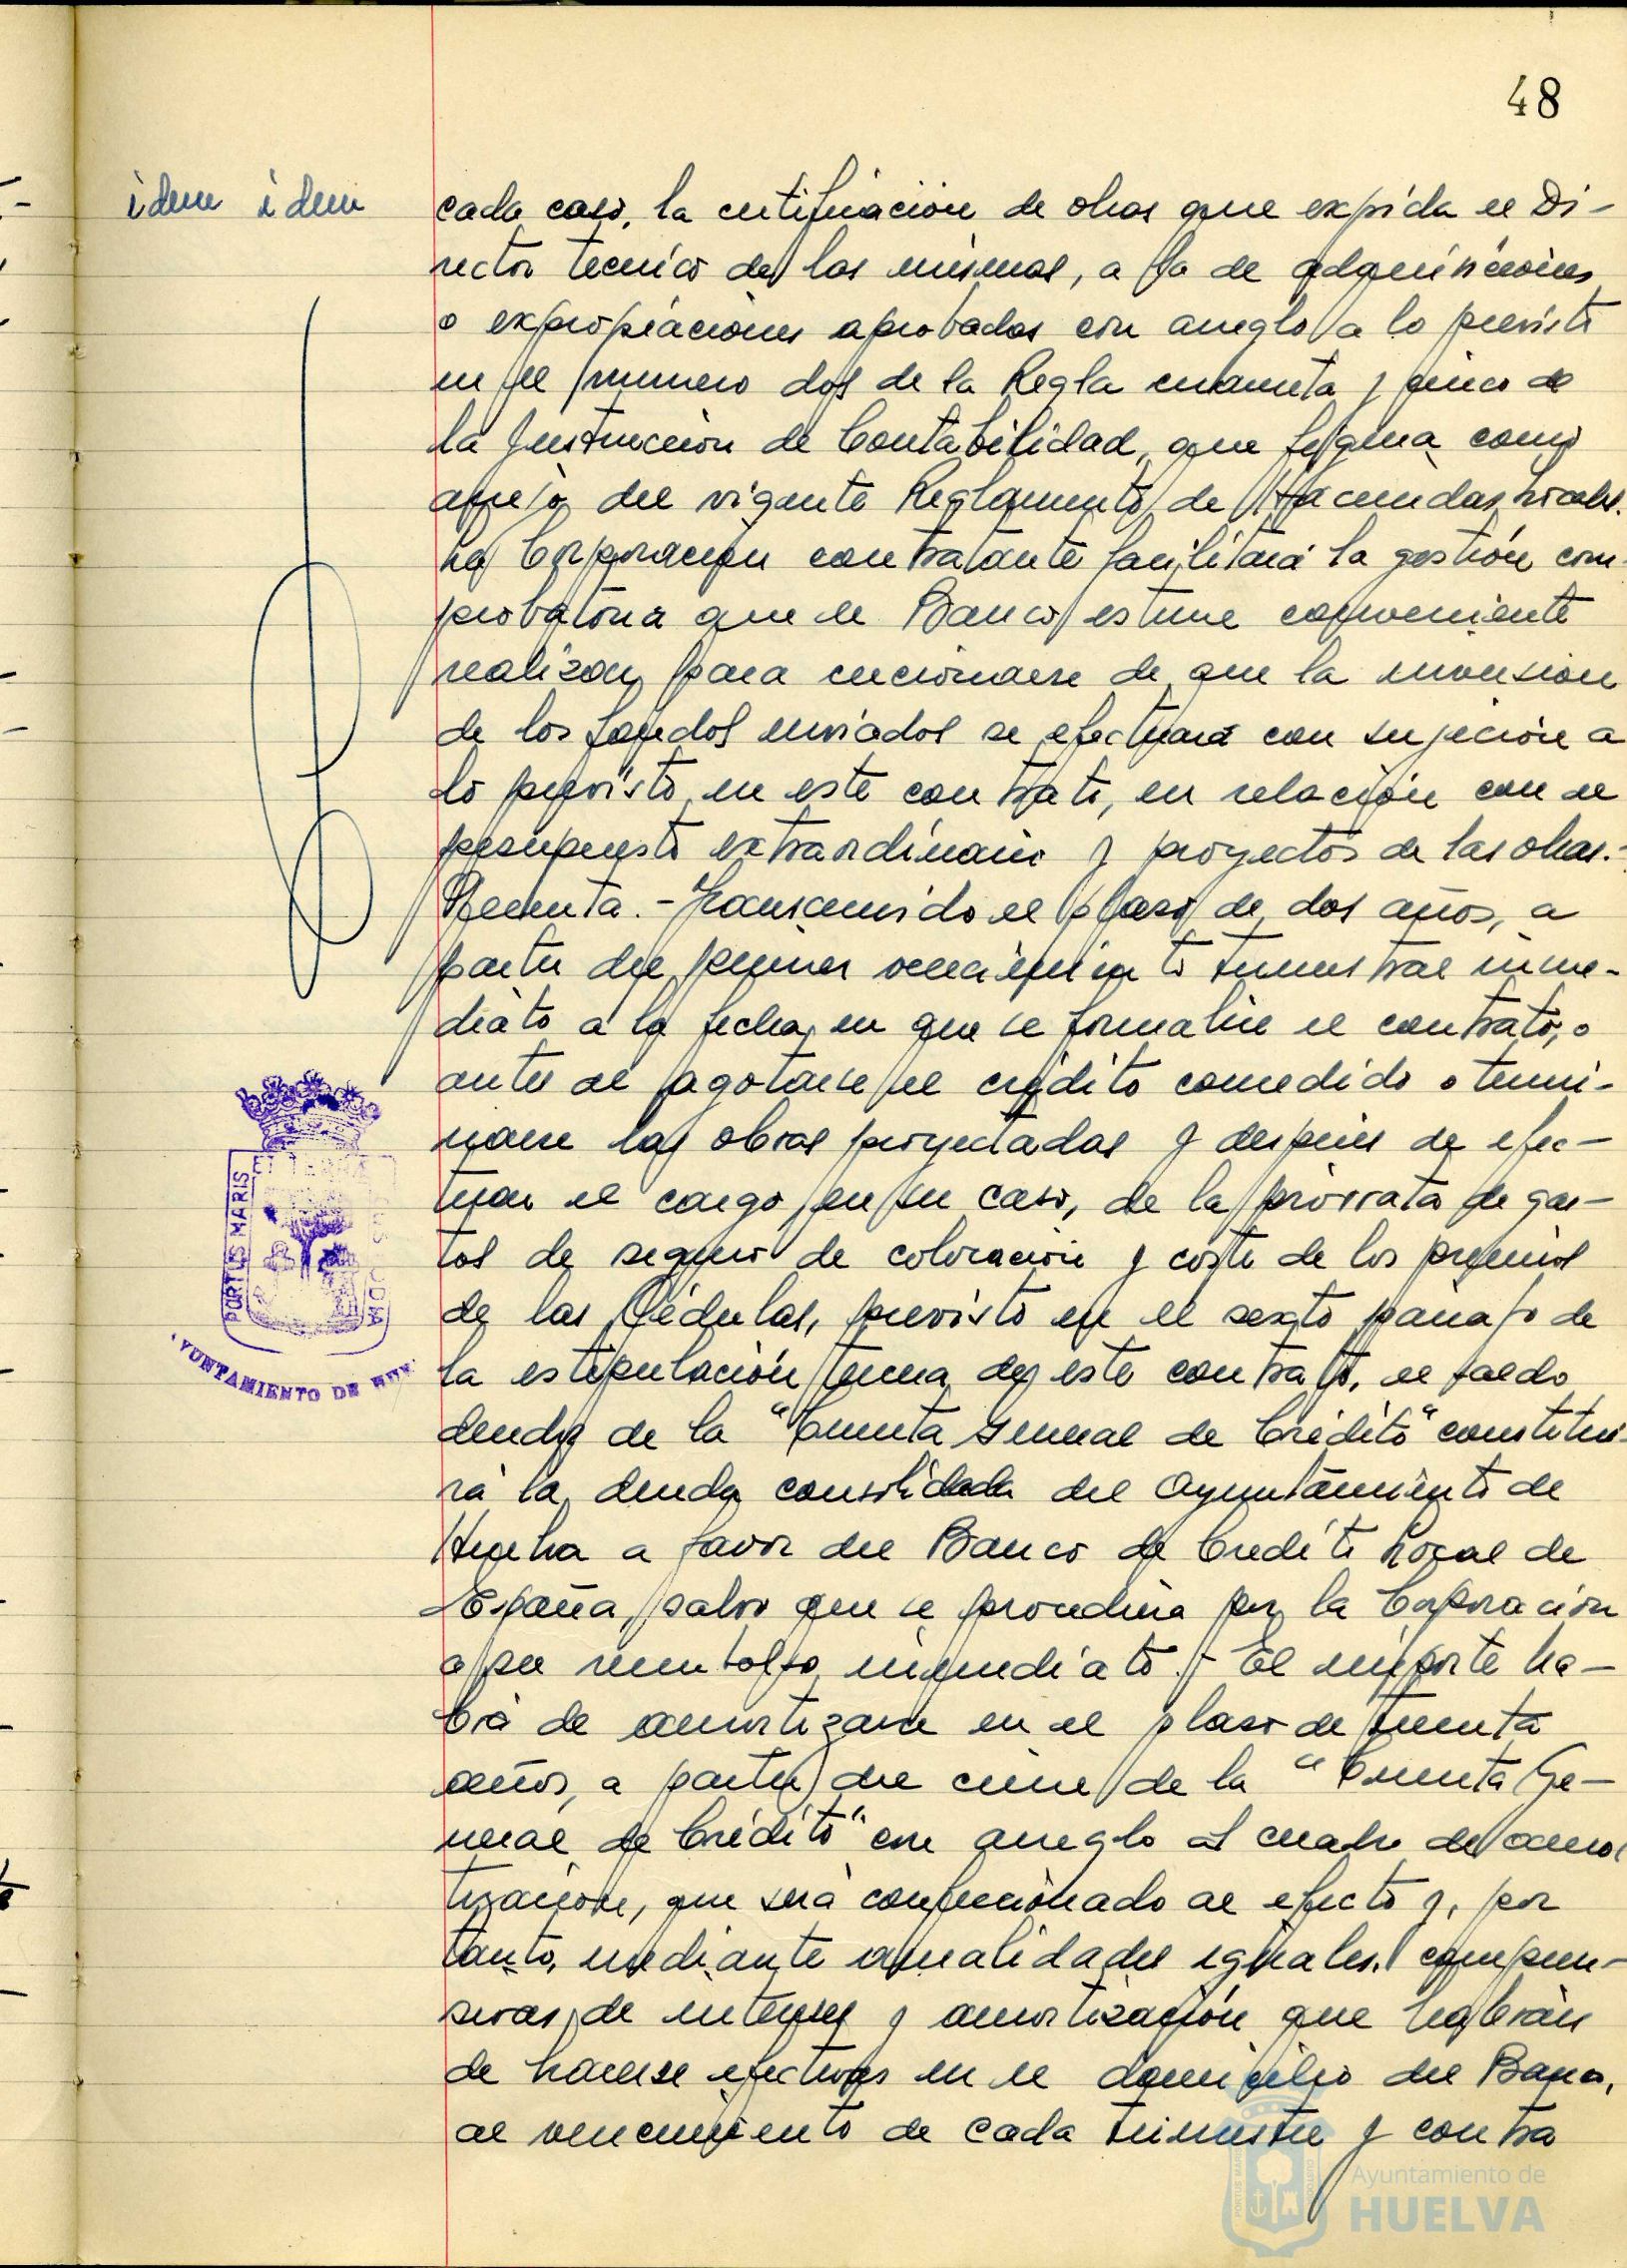 48
idem idem
cada caso, la certificación de obras que expida el Di-
rector técnico de las mismas, a la de adquisiciones
o expropiaciones aprobadas con arreglo a lo previsto
en el número dos de la Regla cuarenta y cinco de
la Instrucción de Contabilidad, que figura como
anejo del vigente Reglamento de Haciendas Locales.
La Corporación contratante facilitará la gestión com-
probatoria que el Banco estime conveniente
realizar, para cerciorarse de que la inversión
de los fondos enviados se efectuará con sujeción a
lo previsto en este contrato, en relación con el
presupuesto extraordinario y proyectos de las obras.-
.- Transcurrido el plazo de dos años, a
partir del primer vencimiento trimestral inme-
diato a la fecha en que se formalice el contrato, o
antes al agotarse el crédito concedido o termi-
narse las obras proyectadas y después de efec-
tuar el cargo, en su caso, de la prorrata de gas-
tos de seguro de coloración y coste de los premios
de las Cédulas, previsto en el sexto párrafo de
la estipulación tercera de este contrato, el saldo
deudor de la "Cuenta General de Crédito" constitui-
rá la deuda consolidada del Ayuntamiento de
Huelva a favor del Banco de Crédito Local de
España, salvo que se procediera por la Corporación
a su reembolso inmediato.- El importe ha-
brá de amortizarse en el plazo de treinta
años, a partir del cierre de la "Cuenta Ge-
neral de Crédito" con arreglo al cuadro de amor
tización, que será confeccionado al efecto y, por
tanto, mediante anualidades iguales, compren-
sivas de interés y amortización que habrán
de hacerse efectivas en el domicilio del Banco,
al vencimiento de cada trimestre y contra
PORTUS MARIS
ET TERRAE
CUSTODIA
AYUNTAMIENTO DE HUELVA
Ayuntamiento de
HUELVA